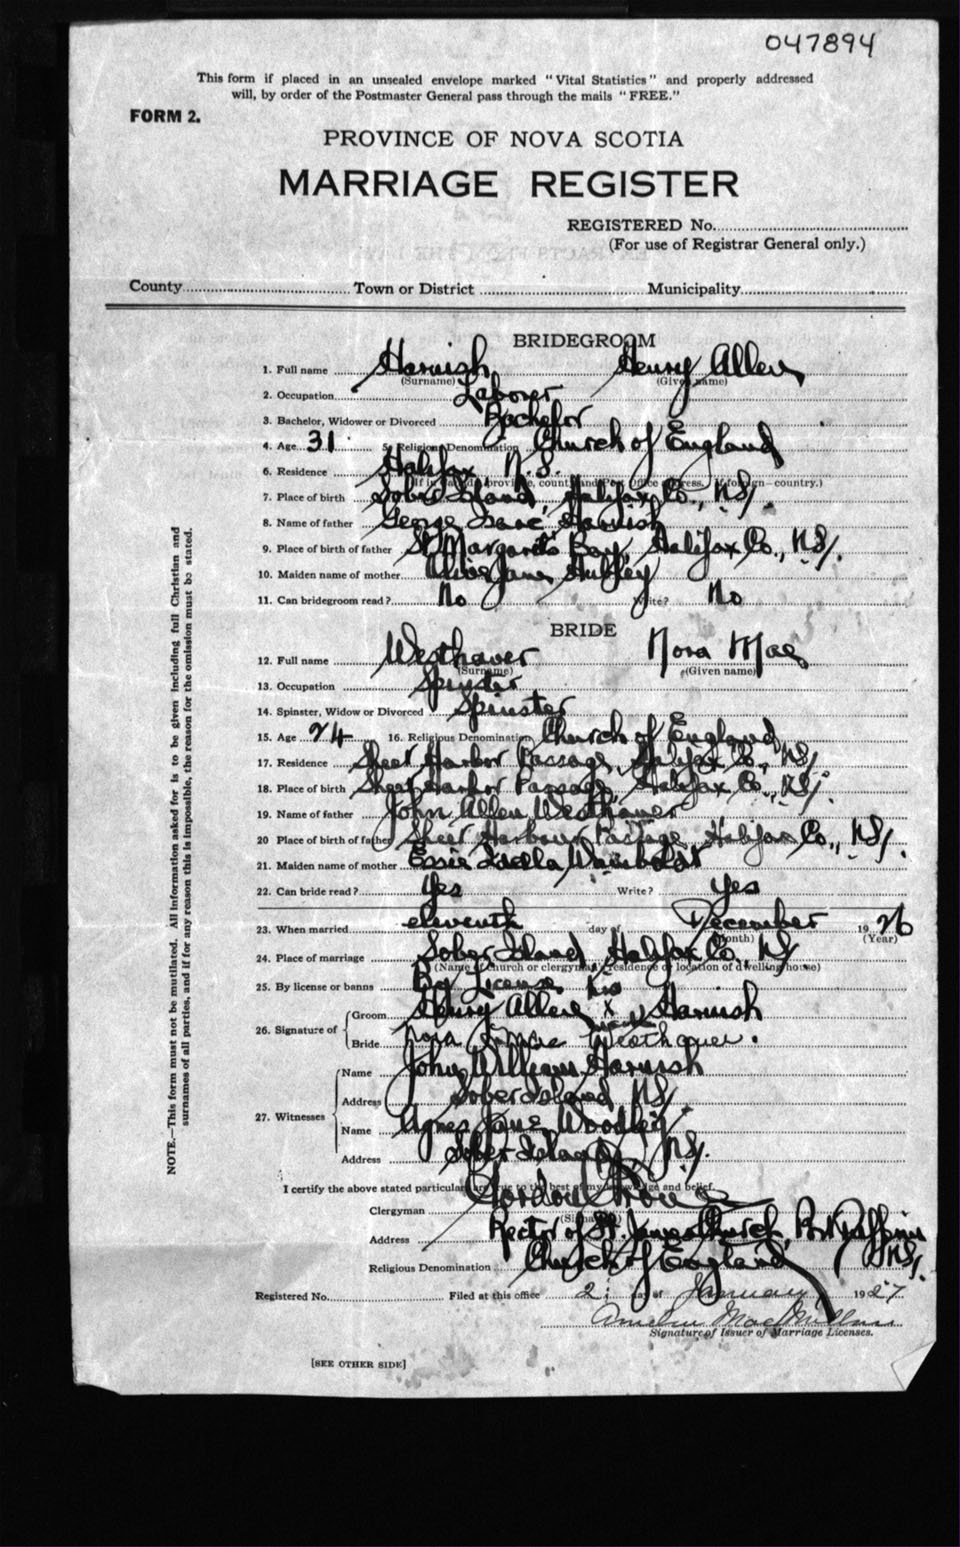 047894
This form if placed in an unsealed envelope marked "Vital Statistics" and properly addressed
will, by order of the Postmaster General pass through the mails "FREE."
FORM 2.
PROVINCE OF NOVA SCOTIA
MARRIAGE REGISTER
REGISTERED No.
(For use of Registrar General only.)
County Town or District Municipality
BRIDEGROOM
1. Full name Harnish Henry Allen
(Surname) (Given name)
2. Occupation Laborer
3. Bachelor, Widower or Divorced Bachelor
4. Age 31 5. Religious Denomination Church of England
6. Residence Halifax N.S.
(If in Canada, province, county and Post Office address. If foreign—country.)
7. Place of birth Sober Island, Halifax Co., N.S.
8. Name of father George Isaac Harnish
9. Place of birth of father St. Margarets Bay, Halifax Co., N.S.
10. Maiden name of mother Alice Jane Hubley
11. Can bridegroom read? No Write? No
BRIDE
12. Full name Westhaver Nora Mae
(Surname) (Given name)
13. Occupation Spinster
14. Spinster, Widow or Divorced Spinster
15. Age 24 16. Religious Denomination Church of England
17. Residence Sheet Harbor Passage, Halifax Co., N.S.
18. Place of birth Sheet Harbor Passage, Halifax Co., N.S.
19. Name of father John Allen Westhaver
20 Place of birth of father Sheet Harbour Passage Halifax Co., N.S.
21. Maiden name of mother Essie
22. Can bride read? Yes Write? Yes
23. When married eleventh day of December 1926
(Month) (Year)
24. Place of marriage Sober Island, Halifax Co., N.S.
(Name of church or clergyman's residence or location of dwelling house)
25. By license or banns By License
his
26. Signature of Groom Henry Allen x Harnish
mark
Bride Nora Mae Westhaver.
27. Witnesses Name John William Harnish
Address Sober Island N.S.
Name Agnes Jane Woodley
Address Sober Island N.S.
I certify the above stated particulars are true to the best of my knowledge and belief.
Clergyman Gordon
(Signature)
Address Rector of St. James Church, Port Dufferin
N.S.
Religious Denomination Church of England
Registered No. Filed at this office 2 day of January 1927
Amelia MacMillan
Signature of Issuer of Marriage Licenses.
[SEE OTHER SIDE]
NOTE.—This form must not be mutilated. All information asked for is to be given including full Christian and
surnames of all parties, and if for any reason this is impossible, the reason for the omission must be stated.